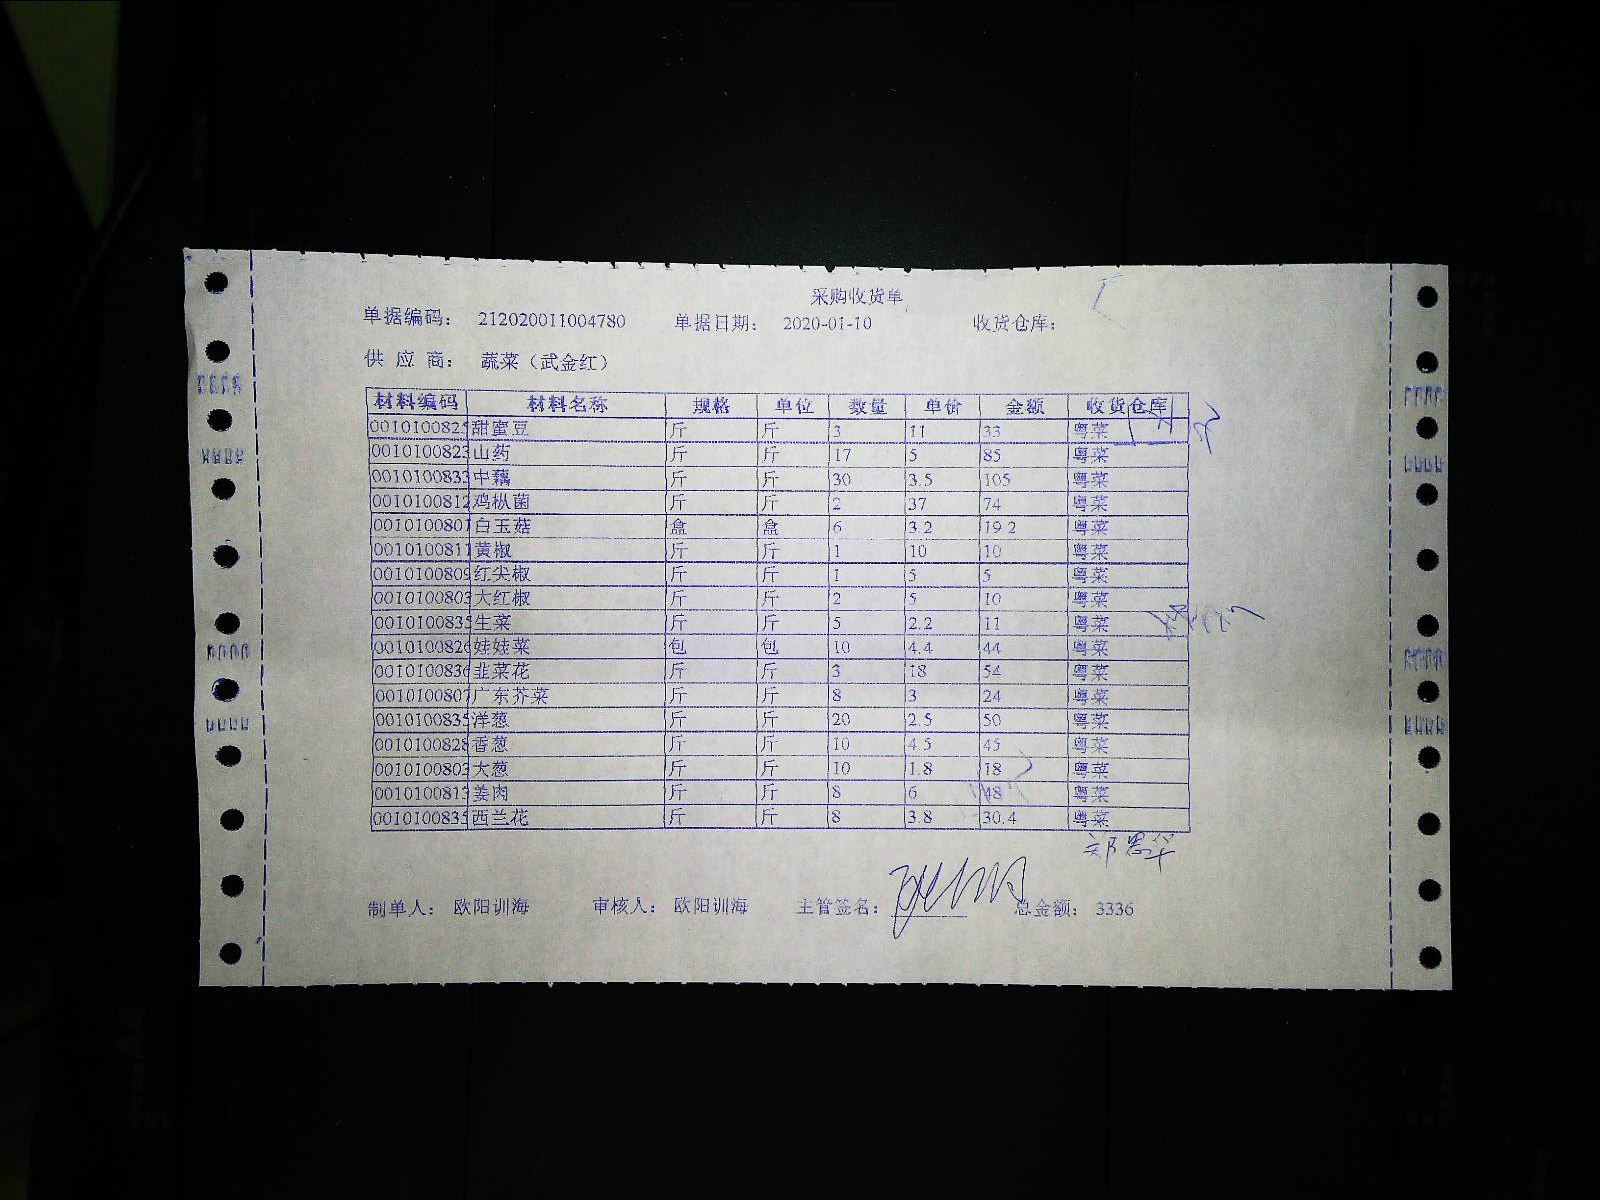 采购收货单
单据编码： 212020011004780 单据日期： 2020-01-10 收货仓库：
供 应 商： 蔬菜（武金红）
材料编码 材料名称 规格 单位 数量 单价 金额 收货仓库
0010100825 甜蜜豆 斤 斤 3 11 33 粤菜
0010100823 山药 斤 斤 17 5 85 粤菜
0010100833 中藕 斤 斤 30 3.5 105 粤菜
0010100812 鸡枞菌 斤 斤 2 37 74 粤菜
0010100801 白玉菇 盒 盒 6 3.2 19.2 粤菜
0010100811 黄椒 斤 斤 1 10 10 粤菜
0010100809 红尖椒 斤 斤 1 5 5 粤菜
0010100803 大红椒 斤 斤 2 5 10 粤菜
0010100835 生菜 斤 斤 5 2.2 11 粤菜
0010100826 娃娃菜 包 包 10 4.4 44 粤菜
0010100836 韭菜花 斤 斤 3 18 54 粤菜
0010100807 广东芥菜 斤 斤 8 3 24 粤菜
0010100835 洋葱 斤 斤 20 2.5 50 粤菜
0010100828 香葱 斤 斤 10 4.5 45 粤菜
0010100803 大葱 斤 斤 10 1.8 18 粤菜
0010100813 姜肉 斤 斤 8 6 48 粤菜
0010100835 西兰花 斤 斤 8 3.8 30.4 粤菜
郑恩华
制单人： 欧阳训海 审核人： 欧阳训海 主管签名： 总金额： 3336